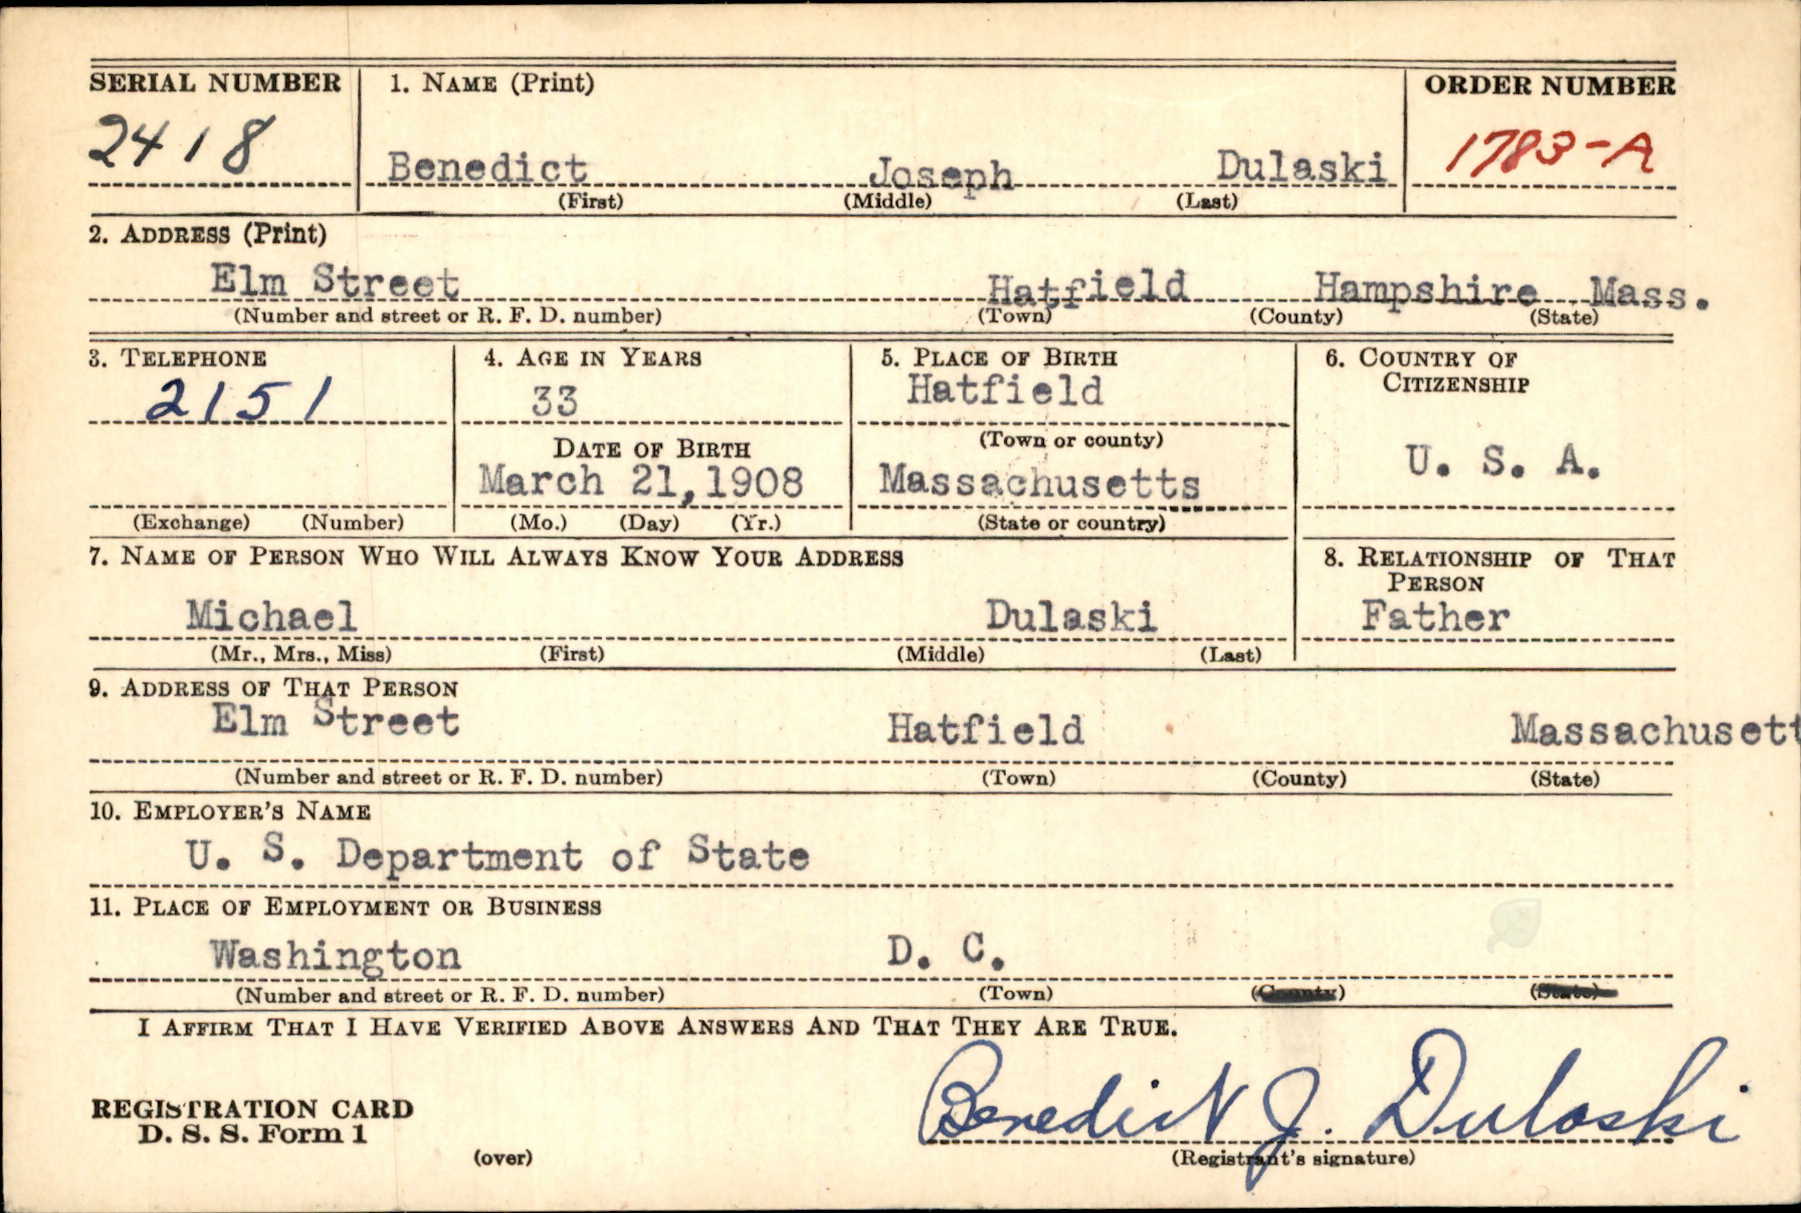 SERIAL NUMBER 1. NAME (Print) ORDER NUMBER
2418 Benedict Joseph Dulaski 1783-A
(First) (Middle) (Last)
2. ADDRESS (Print)
Elm Street Hatfield Hampshire Mass.
(Number and street or R. F. D. number) (Town) (County) (State)
3. TELEPHONE 4. AGE IN YEARS 5. PLACE OF BIRTH 6. COUNTRY OF
CITIZENSHIP
2151 33 Hatfield
DATE OF BIRTH (Town or county)
March 21, 1908 Massachusetts U. S. A.
(Exchange) (Number) (Mo.) (Day) (Yr.) (State or country)
7. NAME OF PERSON WHO WILL ALWAYS KNOW YOUR ADDRESS 8. RELATIONSHIP OF THAT
PERSON
Michael Dulaski Father
(Mr., Mrs., Miss) (First) (Middle) (Last)
9. ADDRESS OF THAT PERSON
Elm Street Hatfield Massachusett
(Number and street or R. F. D. number) (Town) (County) (State)
10. EMPLOYER'S NAME
U. S. Department of State
11. PLACE OF EMPLOYMENT OR BUSINESS
Washington D. C.
(Number and street or R. F. D. number) (Town) (County) (State)
I AFFIRM THAT I HAVE VERIFIED ABOVE ANSWERS AND THAT THEY ARE TRUE.
Benedict J. Dulaski
REGISTRATION CARD
D. S. S. Form 1
(over) (Registrant's signature)